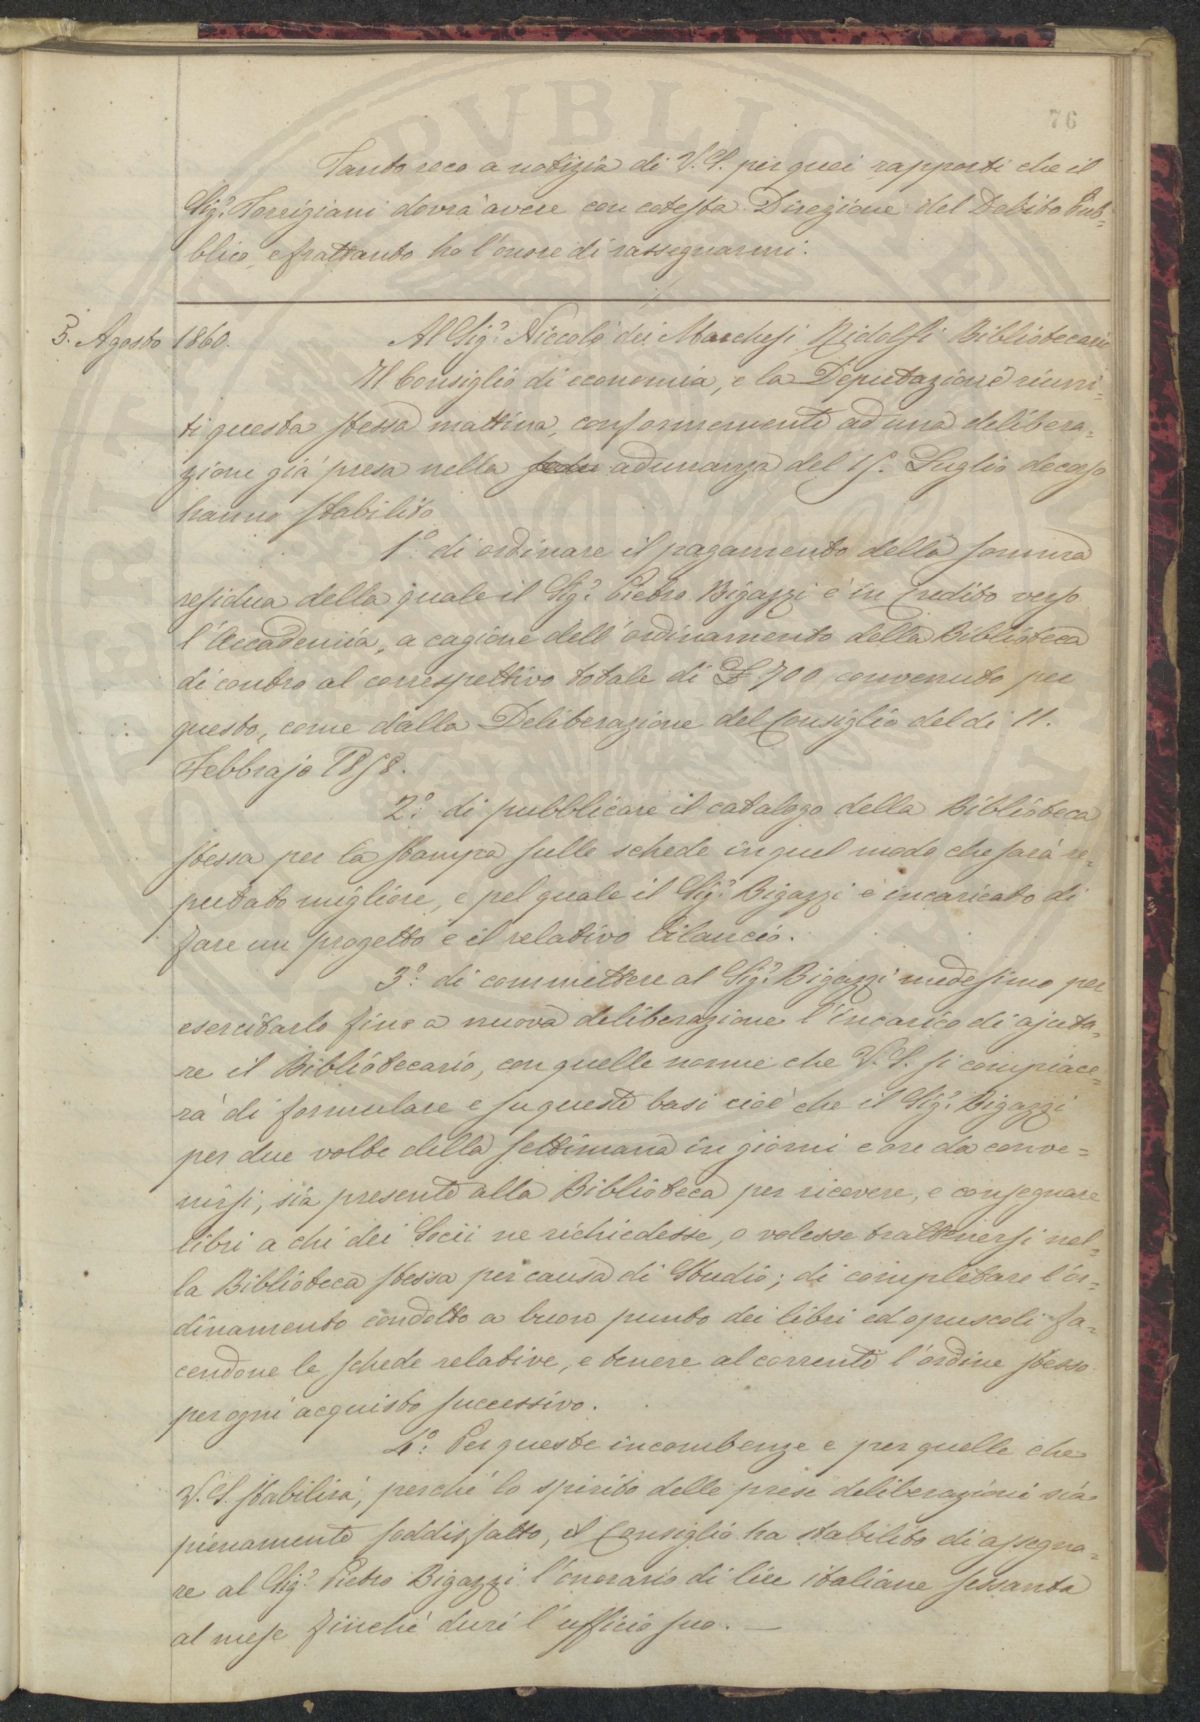 76
Tanto reco a notizia di V. S. per quei rapporti che il
Sigr. Torrigiani dovrà avere con cotesta Direzione del Debito Pub=
blico, e frattanto ho l'onore di rassegnarmi.
3. Agosto 1860. Al Sigr. Niccolò dei Marchesi Ridolfi Bibliotecario
Il Consiglio di economia, e la Deputazione riuni=
ti questa stessa mattina, conformemente ad una delibera=
zione già presa nella adunanza del 15. Luglio decorso
hanno stabilito
1º di ordinare il pagamento della somma
residua della quale il Sigr. Pietro Bigazzi è in credito verso
l'Accademia, a cagione dell'ordinamento della Biblioteca
di contro al correspettivo totale di £ 700 convenuto per
questo, come dalla Deliberazione del Consiglio del dì 11.
Febbrajo 1858.
2º di pubblicare il catalogo della Biblioteca
stessa per la stampa sulle schede in quel modo che sarà re=
putato migliore, e pel quale il Sigr. Bigazzi è incaricato di
fare un progetto e il relativo bilancio.
3º di commettere al Sigr. Bigazzi medesimo per
esercitarlo fino a nuova deliberazione l'incarico di ajuta=
re il Bibliotecario, con quelle norme che V. S. si compiace=
rà di formulare e su queste basi cioè che il Sigr. Bigazzi
per due volte della settimana in giorni e ore da conve=
nirsi, sia presente alla Biblioteca per ricevere, e consegnare
libri a chi dei Socii ne richiedesse, o volesse trattenersi nel=
la Biblioteca stessa per causa di Studio; di completare l'or=
dinamento condotto a buon punto dei libri ed opuscoli fa=
cendone le schede relative, e tenere al corrente l'ordine stesso
per ogni acquisto successivo.
4º Per queste incombenze e per quelle che
V. S. stabilirà, perché lo spirito delle prese deliberazioni sia
pienamente soddisfatto, il Consiglio ha stabilito di assegna=
re al Sigr. Pietro Bigazzi l'onorario di lire italiane sessanta
al mese finché duri l'ufficio suo. —